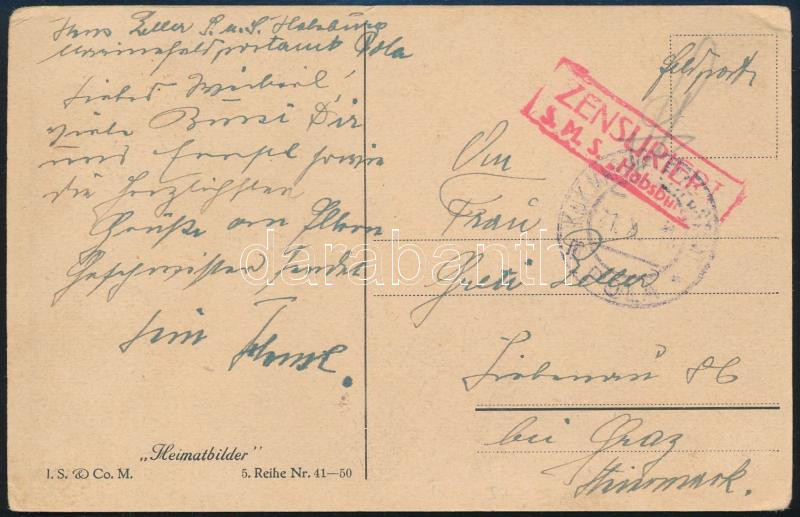 Hans Zeller S.M.S. Habsburg
Marinefeldpostamt Pola
Liebes Weiberl!
Viele Bussi Dir
und sowie
die herzlichsten
Grüße an Eltern
Geschwister sendet
Dein
Feldpost
ZENSURIERT
S.M.S. "Habsburg"
POLA
An
Frau
Greti Zeller
Liebenau 86
bei Graz
Steiermark.
„Heimatbilder"
I. S. & Co. M.
5. Reihe Nr. 41—50
darabanth